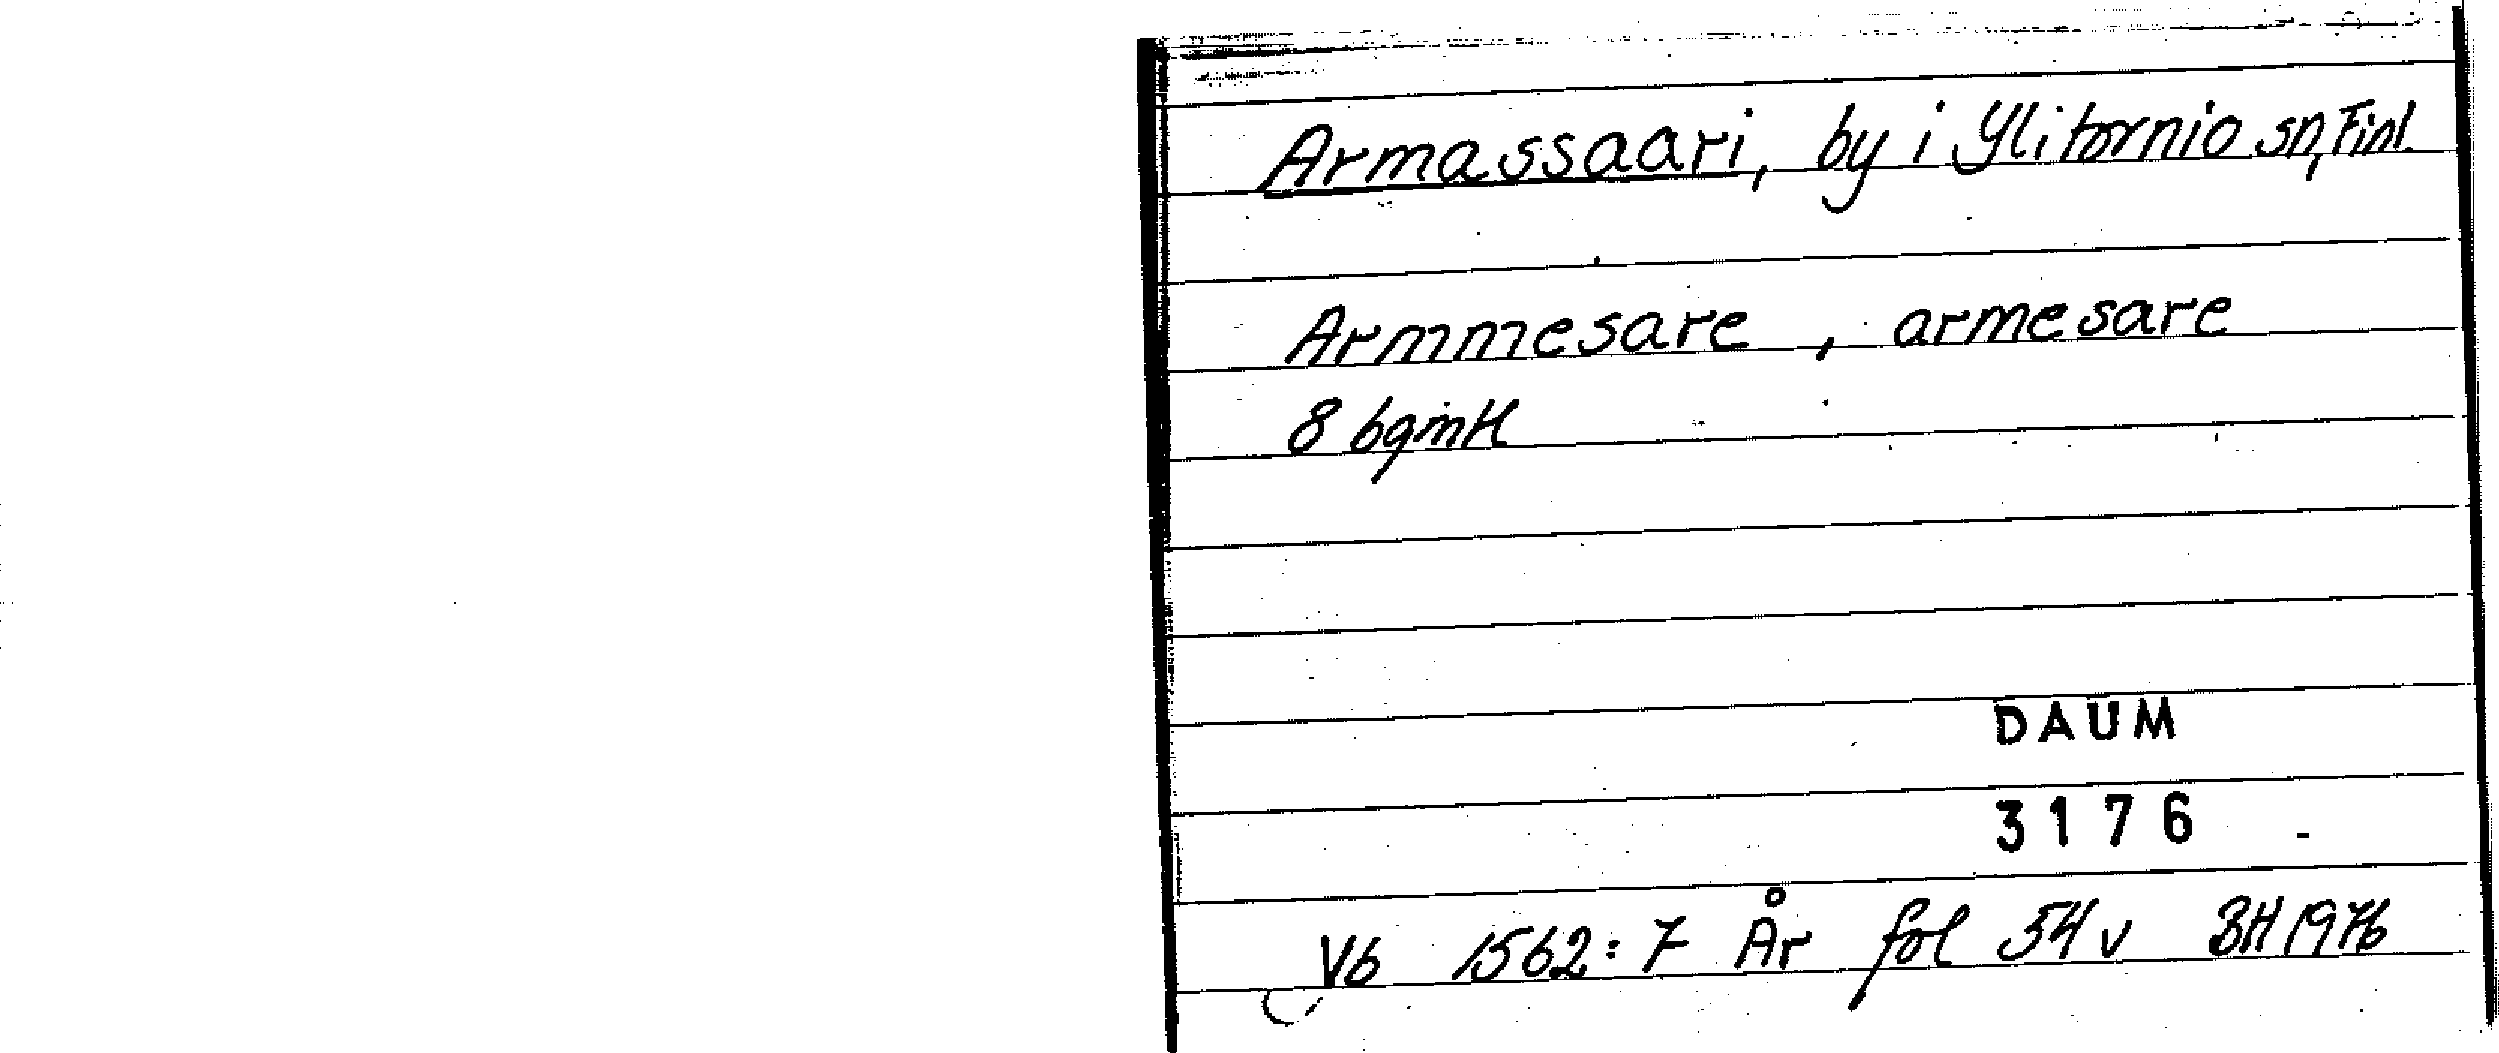 Armassaari, by i Ylitornio sn, Finl.
Armmesare, armesare
8 bgmH
DAUM
3176
Vb 1562:7 År fol 54v BH 1976